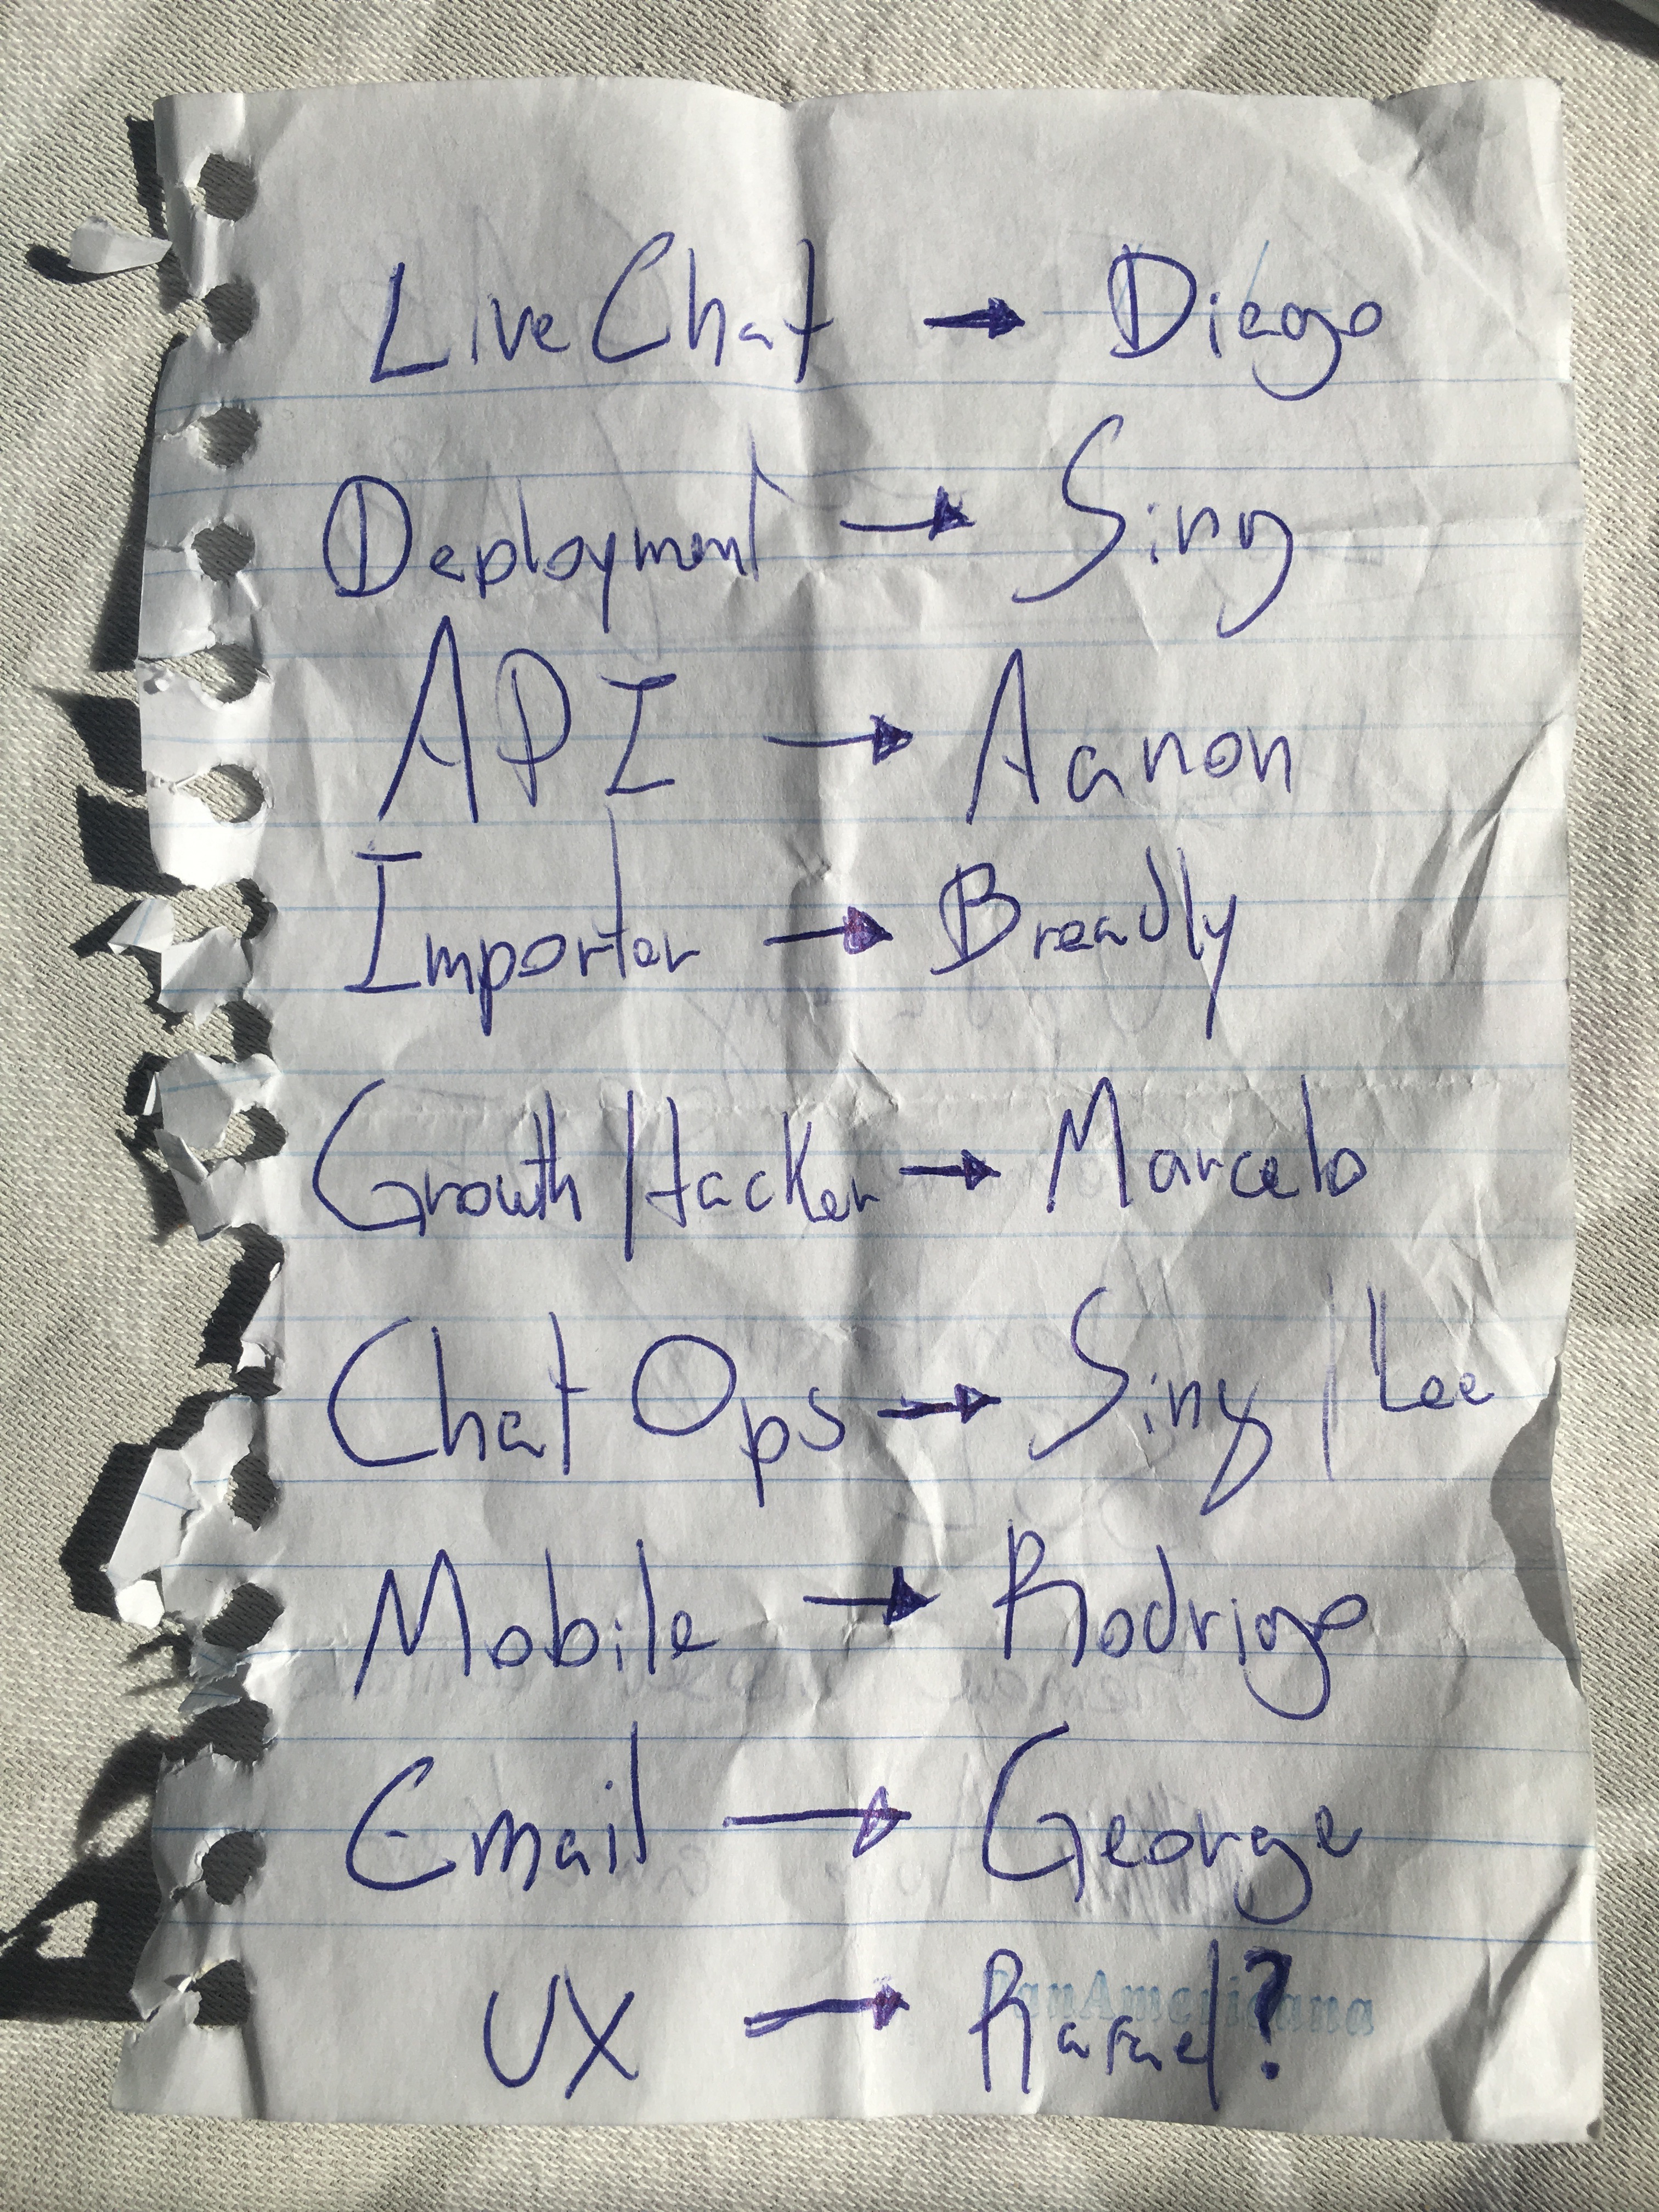 LiveChat → Diego
Deployment → Sing
API → Aaron
Importer → Breadly
Growth Hacker → Marcelo
Chat Ops → Sing / Lee
Mobile → Rodrigo
Email → George
UX → Rafael?
PanAmericana